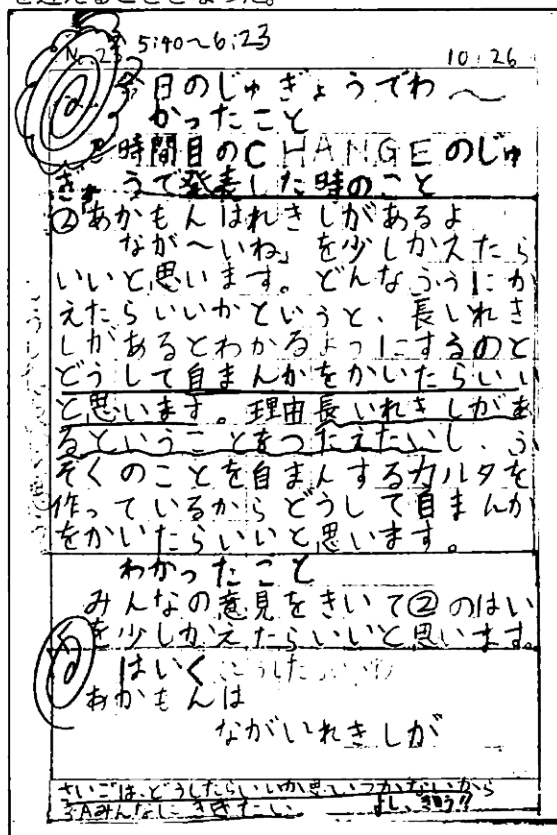 を迎えることとなった。
5:40〜6:23
10:26
今日のじゅぎょうでわ〜
かったこと
時間目のCHANGEのじゅ
ぎょうで発表した時のこと
②あかもんはれきしがあるよ
なが〜いね」を少しかえたら
いいと思います。どんなふうにか
えたらいいかというと、長いれき
しがあるとわかるようにするのと
どうして自まんかをかいたらいい
と思います。理由長いれきしがあ
るということをつたえたいし、ふ
ぞくのことを自まんするカルタを
作っているからどうして自まんか
をかいたらいいと思います。
わかったこと
みんなの意見をきいて②のはい
を少しかえたらいいと思います。
はいく
あかもんは
ながいれきしが
さいごは、どうしたらいいか思いつかないから
3Aみんなにききたい
よし、